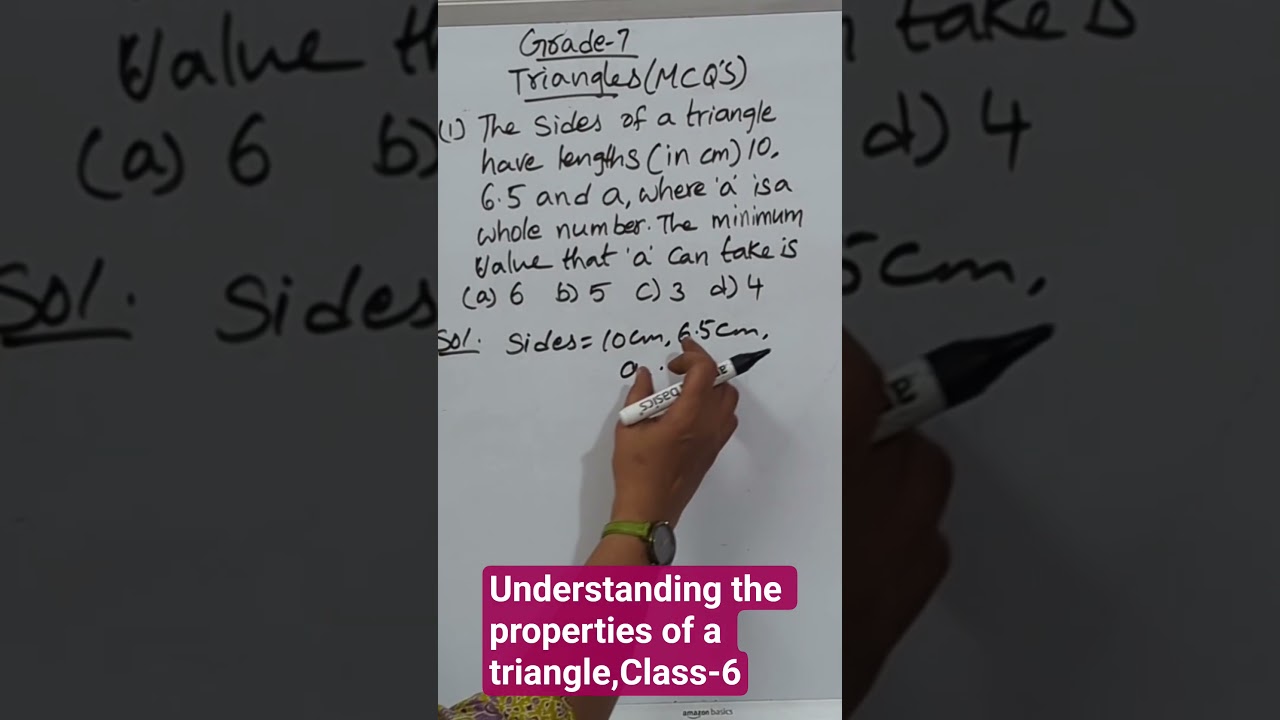 Grade-7
Triangles (MCQ'S)
(1) The sides of a triangle
have lengths (in cm) 10,
6.5 and a, where 'a' is a
whole number. The minimum
Value that 'a' can take is
(a) 6 b) 5 c) 3 d) 4
Sol. Sides = 10cm, 6.5cm,
a
basics
Understanding the
properties of a
triangle,Class-6
amazon basics